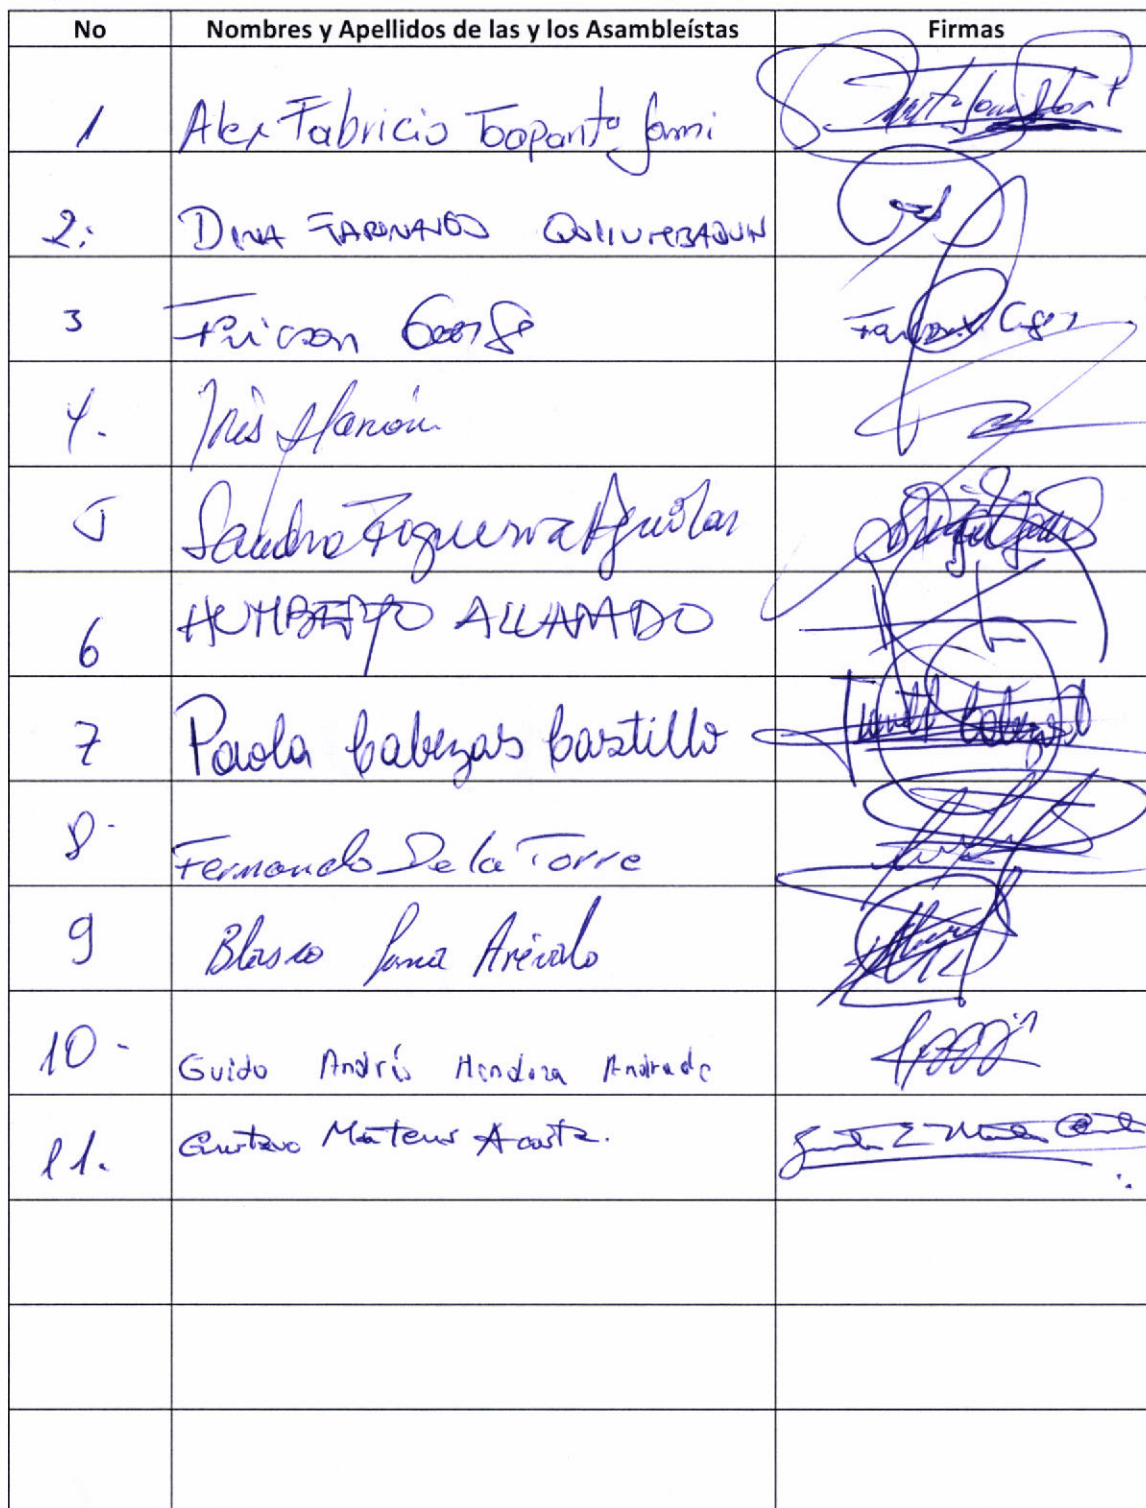 No Nombres y Apellidos de las y los Asambleístas Firmas
1 Alex Fabricio Toapanta Jami
2. DINA FARINANGO QUILUMBAQUIN
3 Ericson George
4. Inés Alarcón
5 Sandra Figueroa Aguilar
6 HUMBERTO ALVARADO
7 Paola Cabezas Castillo
8- Fernando De la Torre
9 Blasco Luna Arévalo
10- Guido Andrés Mendoza Andrade
11. Gustavo Mateus Acosta.